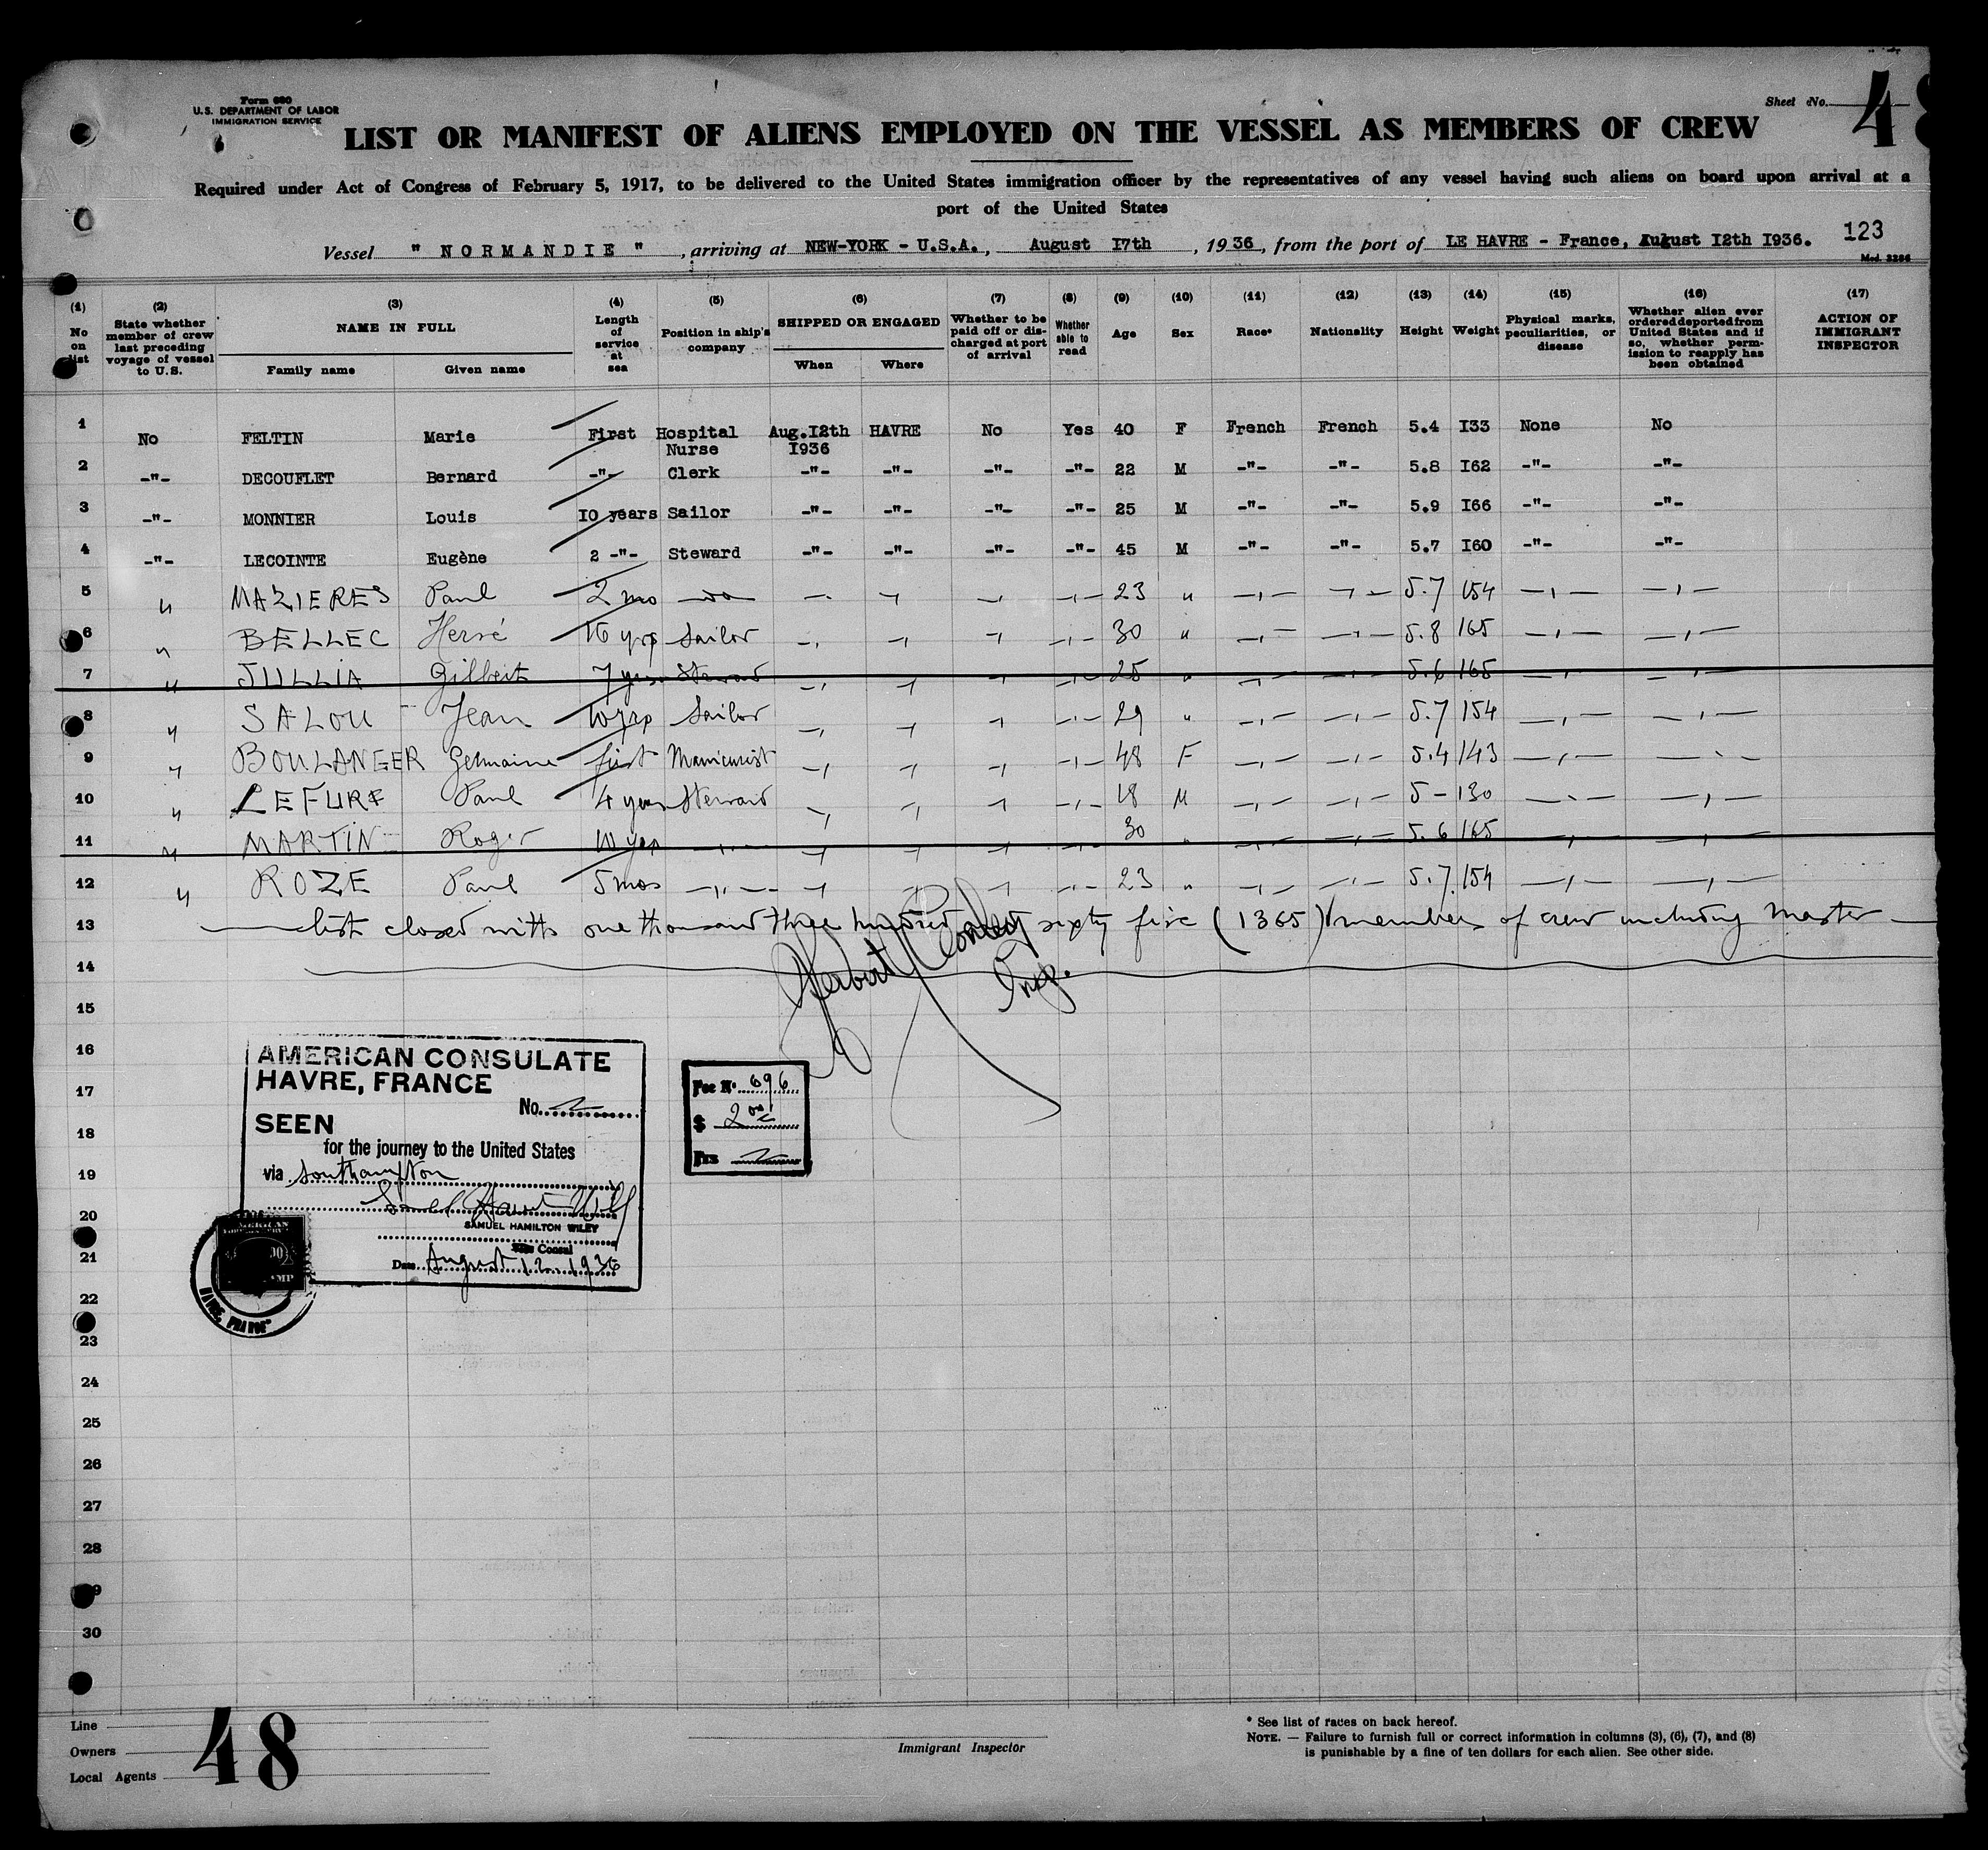 Form 680
U.S. DEPARTMENT OF LABOR
IMMIGRATION SERVICE
Sheet No. 48
LIST OR MANIFEST OF ALIENS EMPLOYED ON THE VESSEL AS MEMBERS OF CREW
Required under Act of Congress of February 5, 1917, to be delivered to the United States immigration officer by the representatives of any vessel having such aliens on board upon arrival at a
port of the United States
Vessel " NORMANDIE " , arriving at NEW-YORK - U.S.A., August I7th , 1936, from the port of LE HAVRE - France, August I2th I936. 123
Mod. 3286
(1) No on list (2) State whether member of crew last preceding voyage of vessel to U.S. (3) NAME IN FULL Family name Given name (4) Length of service at sea (5) Position in ship's company (6) SHIPPED OR ENGAGED When Where (7) Whether to be paid off or discharged at port of arrival (8) Whether able to read (9) Age (10) Sex (11) Race* (12) Nationality (13) Height (14) Weight (15) Physical marks, peculiarities, or disease (16) Whether alien ever ordered deported from United States and if so, whether permission to reapply has been obtained (17) ACTION OF IMMIGRANT INSPECTOR
1 No FELTIN Marie First Hospital Nurse Aug.I2th I936 HAVRE No Yes 40 F French French 5.4 I33 None No
2 -"- DECOUFLET Bernard -"- Clerk -"- -"- -"- -"- 22 M -"- -"- 5.8 I62 -"- -"-
3 -"- MONNIER Louis IO years Sailor -"- -"- -"- -"- 25 M -"- -"- 5.9 I66 -"- -"-
4 -"- LECOINTE Eugène 2 -"- Steward -"- -"- -"- -"- 45 M -"- -"- 5.7 I60 -"- -"-
5 " MAZIERES Paul 2 mo -do- 23 " 5.7 154
6 " BELLEC Hervé 16 yrs Sailor 30 " 5.8 165
7 " JULLIA Gilbert 7 yrs Steward 25 " 5.6 165
8 " SALOU Jean 10 yrs Sailor 29 " 5.7 154
9 " BOULANGER Germaine first Manicurist 48 F 5.4 143
10 " LEFURE Paul 4 years Steward 18 M 5 - 130
11 " MARTIN Roger 10 yrs 30 " 5.6 165
12 " ROZE Paul 5 mos 23 " 5.7 154
13 list closed with one thousand three hundred sixty five (1365) members of crew including Master
Herbert Insp.
14
15
16
17
18
19
20
21
22
23
24
25
26
27
28
29
30
AMERICAN CONSULATE
HAVRE, FRANCE
No.
SEEN
for the journey to the United States
via Southampton
SAMUEL HAMILTON WILEY
Consul
Date August 12 1936
HAVRE, FRANCE
Fee No. 696
$ 2.00
Frs
Line
Owners
Local Agents
48
Immigrant Inspector
* See list of races on back hereof.
NOTE. — Failure to furnish full or correct information in columns (3), (6), (7), and (8)
is punishable by a fine of ten dollars for each alien. See other side.